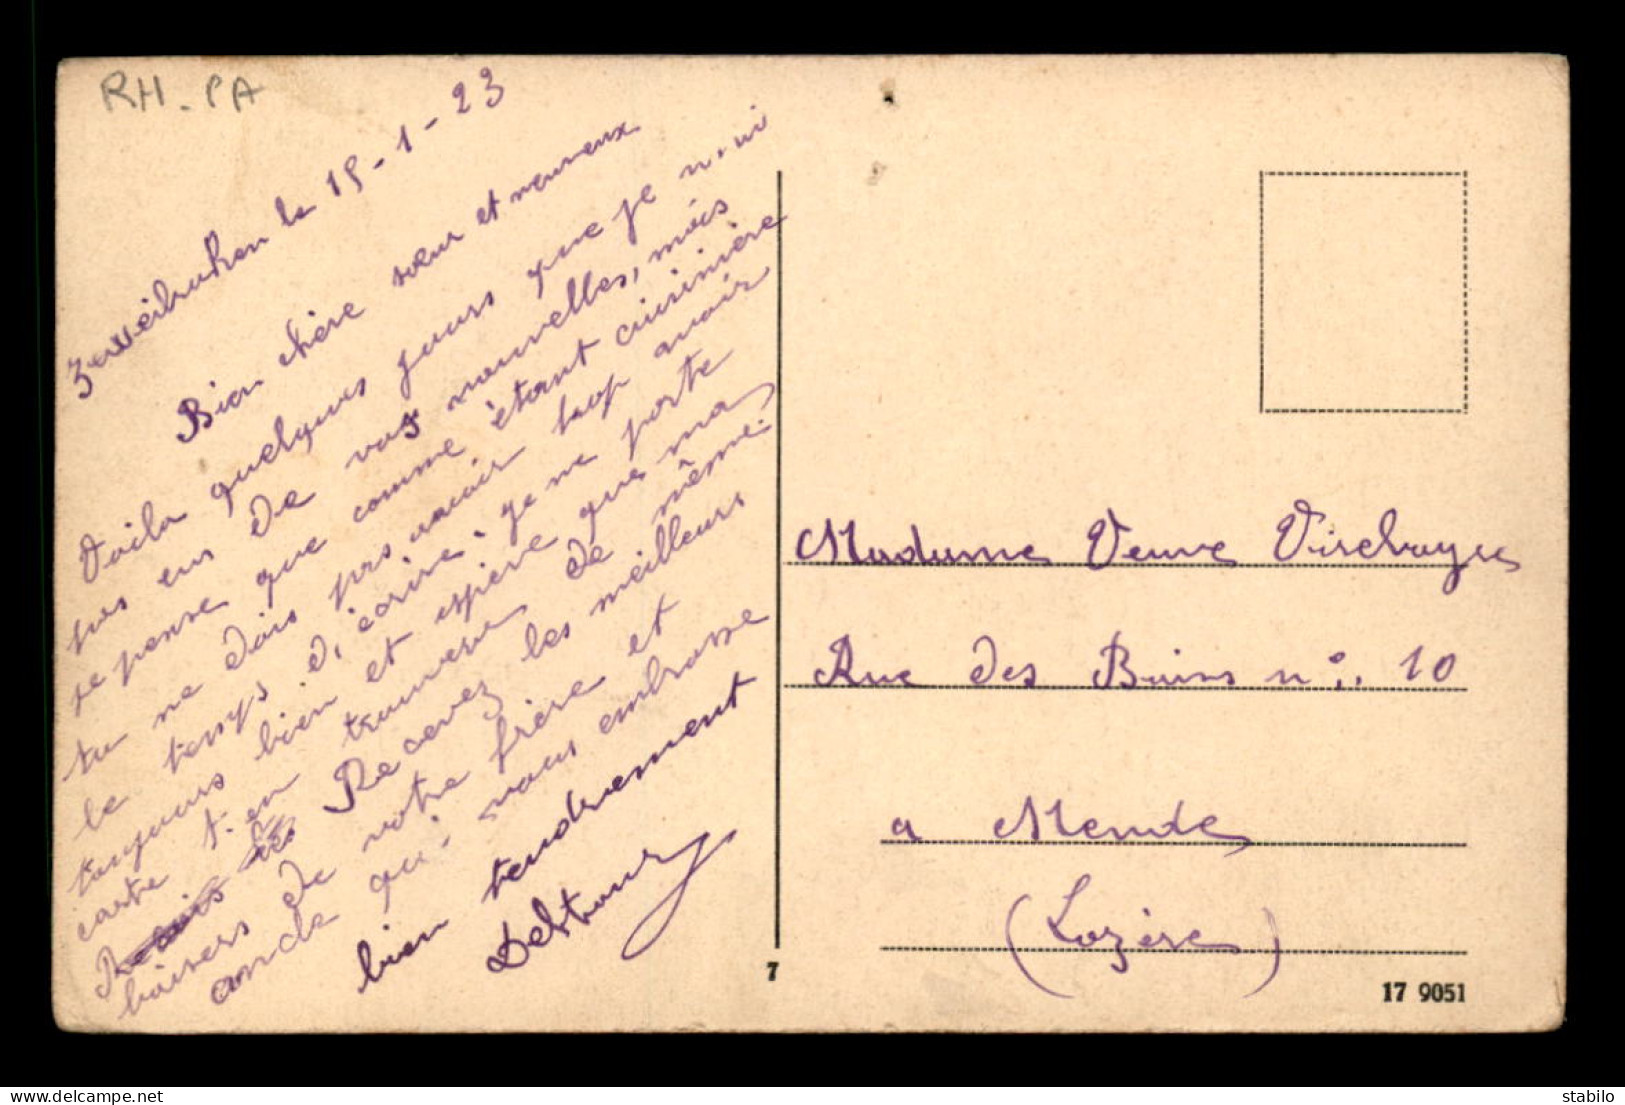 RH - PA
Zweibruken le 15-1-23
Bien chère sœur et neuveux
Voila quelques jours que je n'ai
pas eus de vos nouvelles, mais
je pense que comme étant cuisinière
tu ne dois pas avoir trop avoir
le temps d'écrire. je me porte
toujours bien et espère que ma
carte t-en trouvera de même.
Recevez les meilleurs
baisers de votre frère et
oncle qui vous embrasse
bien tendrement
Delstour
Madame Veuve Virebayre
Rue des Bains n° 10
a Mende
(Lozère)
7
17 9051
delcampe.net
stabilo